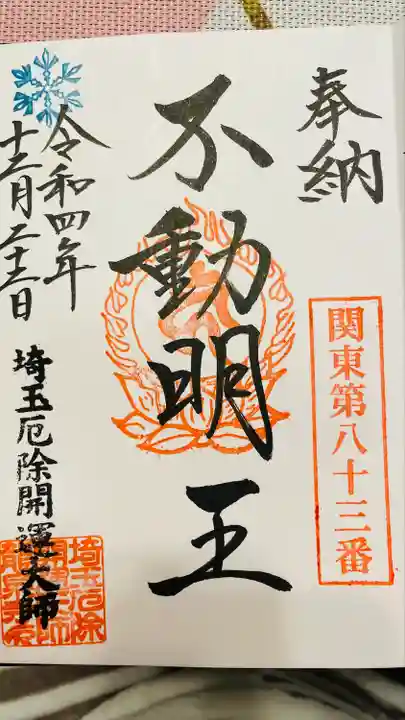 奉納
関東第八十三番
不動明王
令和四年
十二月二十二日
埼玉厄除開運大師
埼玉厄除
開運大師
龍泉寺